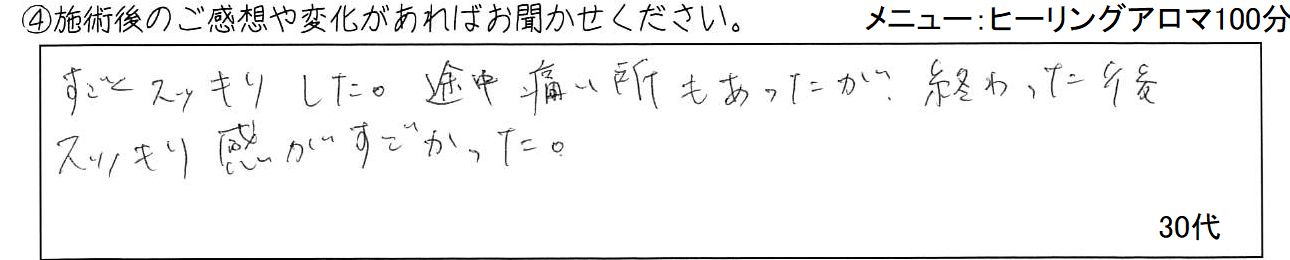 ④施術後のご感想や変化があればお聞かせください。 メニュー:ヒーリングアロマ100分
すごくスッキリした。途中痛い所もあったが、終わった後
スッキリ感がすごかった。
30代